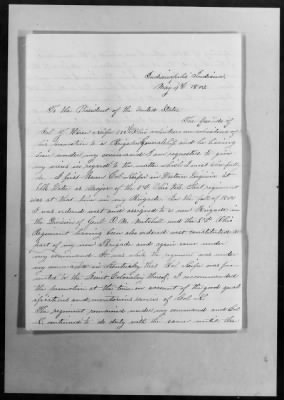 Indianapolis Indiana
May 4th
To the President of the United States
The friends of
Col J. Warren Keifer 110th Ohio volunteers
his promotion to a Brigadier Generalship and he having
been under my command I am requested to give
my views in regard to the matter which I most cheerfully
do. I first knew Col Keifer in Western Virginia at
Elk Water as Major of the 3d Ohio Vols. That regiment
was at that time in my Brigade. In the fall of 1861
I was ordered west and assigned to a new Brigade in
the Division of Genl O. M. Mitchel and the 3d Ohio
Regiment having been also ordered west constituted a
part of my new Brigade and again came under
my command. It was while the regiment was under
my command in Kentucky that Col Keifer was pro-
moted to the Lieut Colonelcy thereof. I recommended
the promotion at the time on account of the good qual-
ifications and meritorious services of Col K.
The regiment remained under my command and Col
K continued to do duty with the same until the